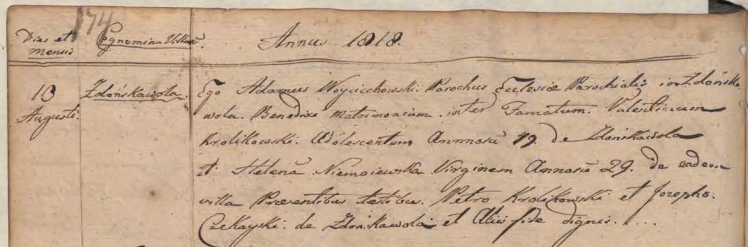 174
Dies et Cognomina Villae. Annus 1818.
mensis
13 Zdońskawola. Ego Adamus Woyciechowski Parochus Ecclesiæ Parochialis in Zdońska
Augusti. wola. Benedixi matrimonium inter Famatum Valentinum
Krolikowski. Adolescentem Annorū 19. de Zdońskawola
et Helenā Niemoiewska Virginem Annorū 29. de eadem
villa Præsentibus testibus. Petro Krolikowski et Josepho
Czekayski. de Zdońskawola et Aliis fide dignis. ...